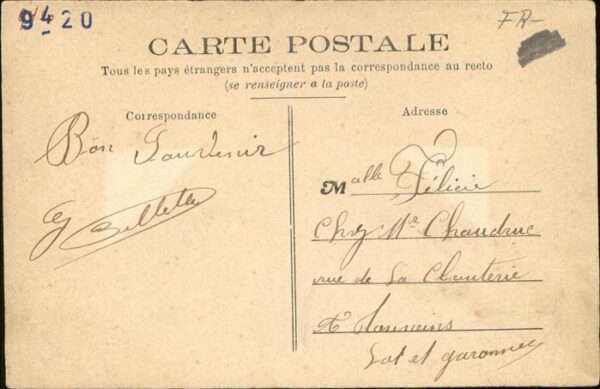 94 20
FR-
CARTE POSTALE
Tous les pays étrangers n'acceptent pas la correspondance au recto
(se renseigner a la poste)
Correspondance
Bon Souvenir
Adresse
Malle Félicie
Chez Mr Chaudruc
rue de La
A
Lot et garonne